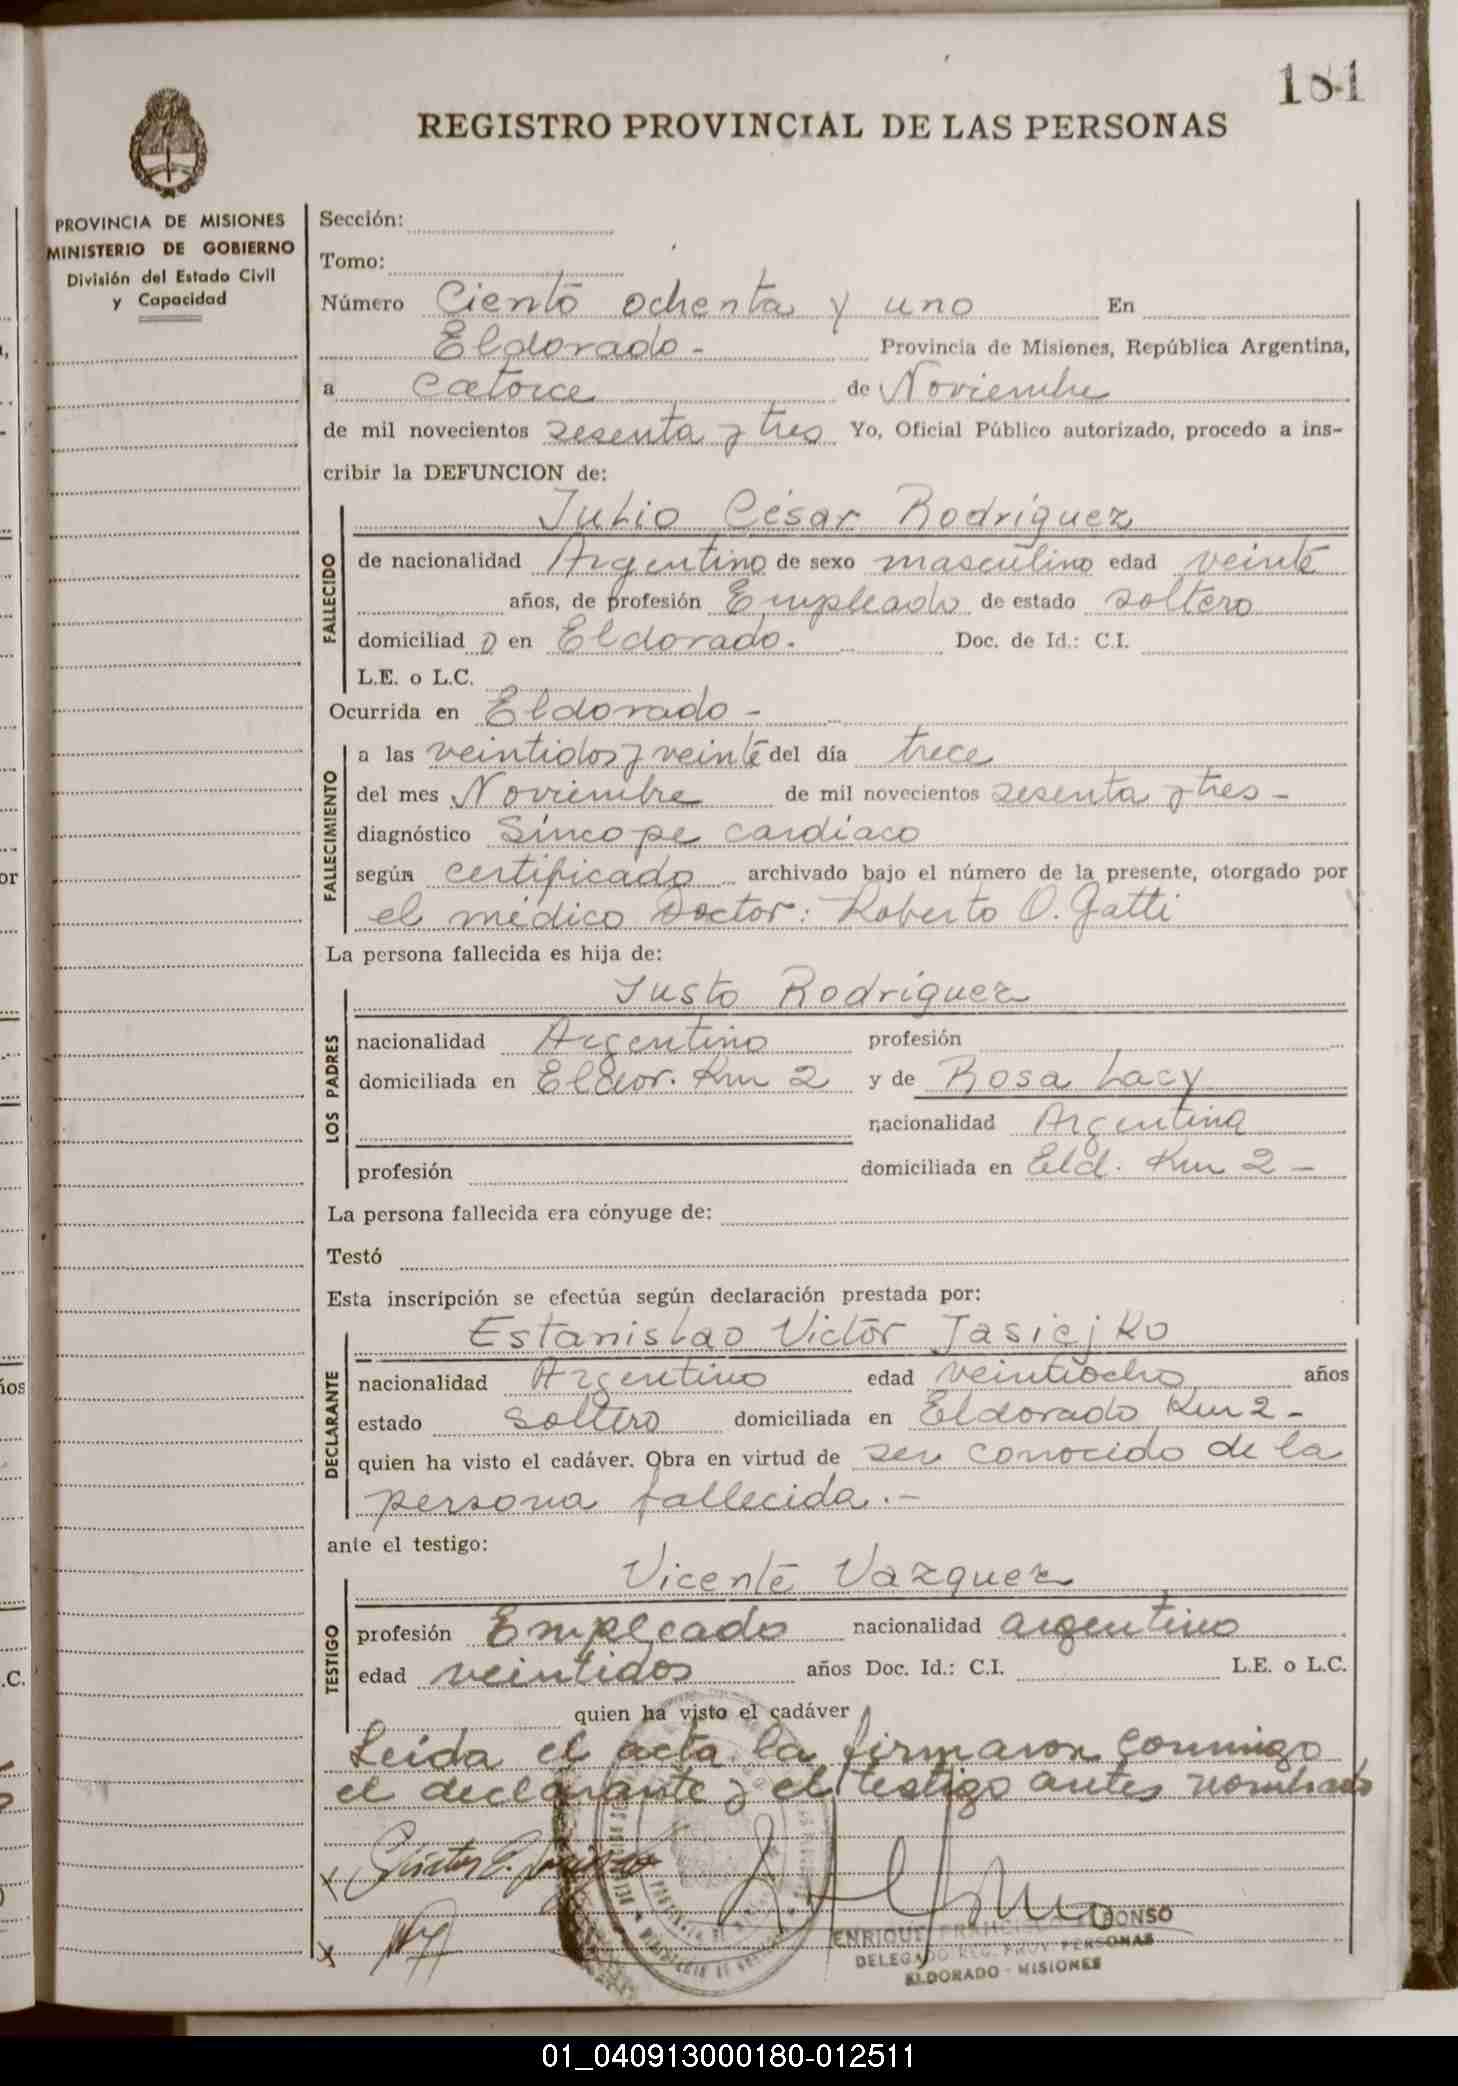 181
REGISTRO PROVINCIAL DE LAS PERSONAS
PROVINCIA DE MISIONES
MINISTERIO DE GOBIERNO
División del Estado Civil
y Capacidad
Sección:
Tomo:
Número Ciento ochenta y uno En
Eldorado - Provincia de Misiones, República Argentina,
a catorce de Noviembre
de mil novecientos sesenta y tres Yo, Oficial Público autorizado, procedo a ins-
cribir la DEFUNCION de:
FALLECIDO
Julio César Rodríguez
de nacionalidad Argentino de sexo masculino edad veinte
años, de profesión Empleado de estado soltero
domiciliad o en Eldorado. Doc. de Id.: C.I.
L.E. o L.C.
Ocurrida en Eldorado -
FALLECIMIENTO
a las veintidos y veinte del día trece
del mes Noviembre de mil novecientos sesenta y tres -
diagnóstico Síncope cardíaco
según certificado archivado bajo el número de la presente, otorgado por
el médico Doctor: Roberto O. Gatti
La persona fallecida es hija de:
LOS PADRES
Justo Rodríguez
nacionalidad Argentino profesión
domiciliada en Eldor. Km 2 y de Rosa Lacy
nacionalidad Argentina
profesión domiciliada en Eld. Km 2 -
La persona fallecida era cónyuge de:
Testó
Esta inscripción se efectúa según declaración prestada por:
DECLARANTE
Estanislao Victor Jasiejko
nacionalidad Argentino edad veintiocho años
estado soltero domiciliada en Eldorado Km 2 -
quien ha visto el cadáver. Obra en virtud de ser conocido de la
persona fallecida. -
ante el testigo:
TESTIGO
Vicente Vazquez
profesión Empleado nacionalidad argentino
edad veintidos años Doc. Id.: C.I. L.E. o L.C.
quien ha visto el cadáver
Leida el acta la firmaron conmigo
el declarante y el testigo antes nombrado
ENRIQUE FRANCISCO
DELEGADO REG. PROV. PERSONAS
ELDORADO - MISIONES
01_040913000180-012511